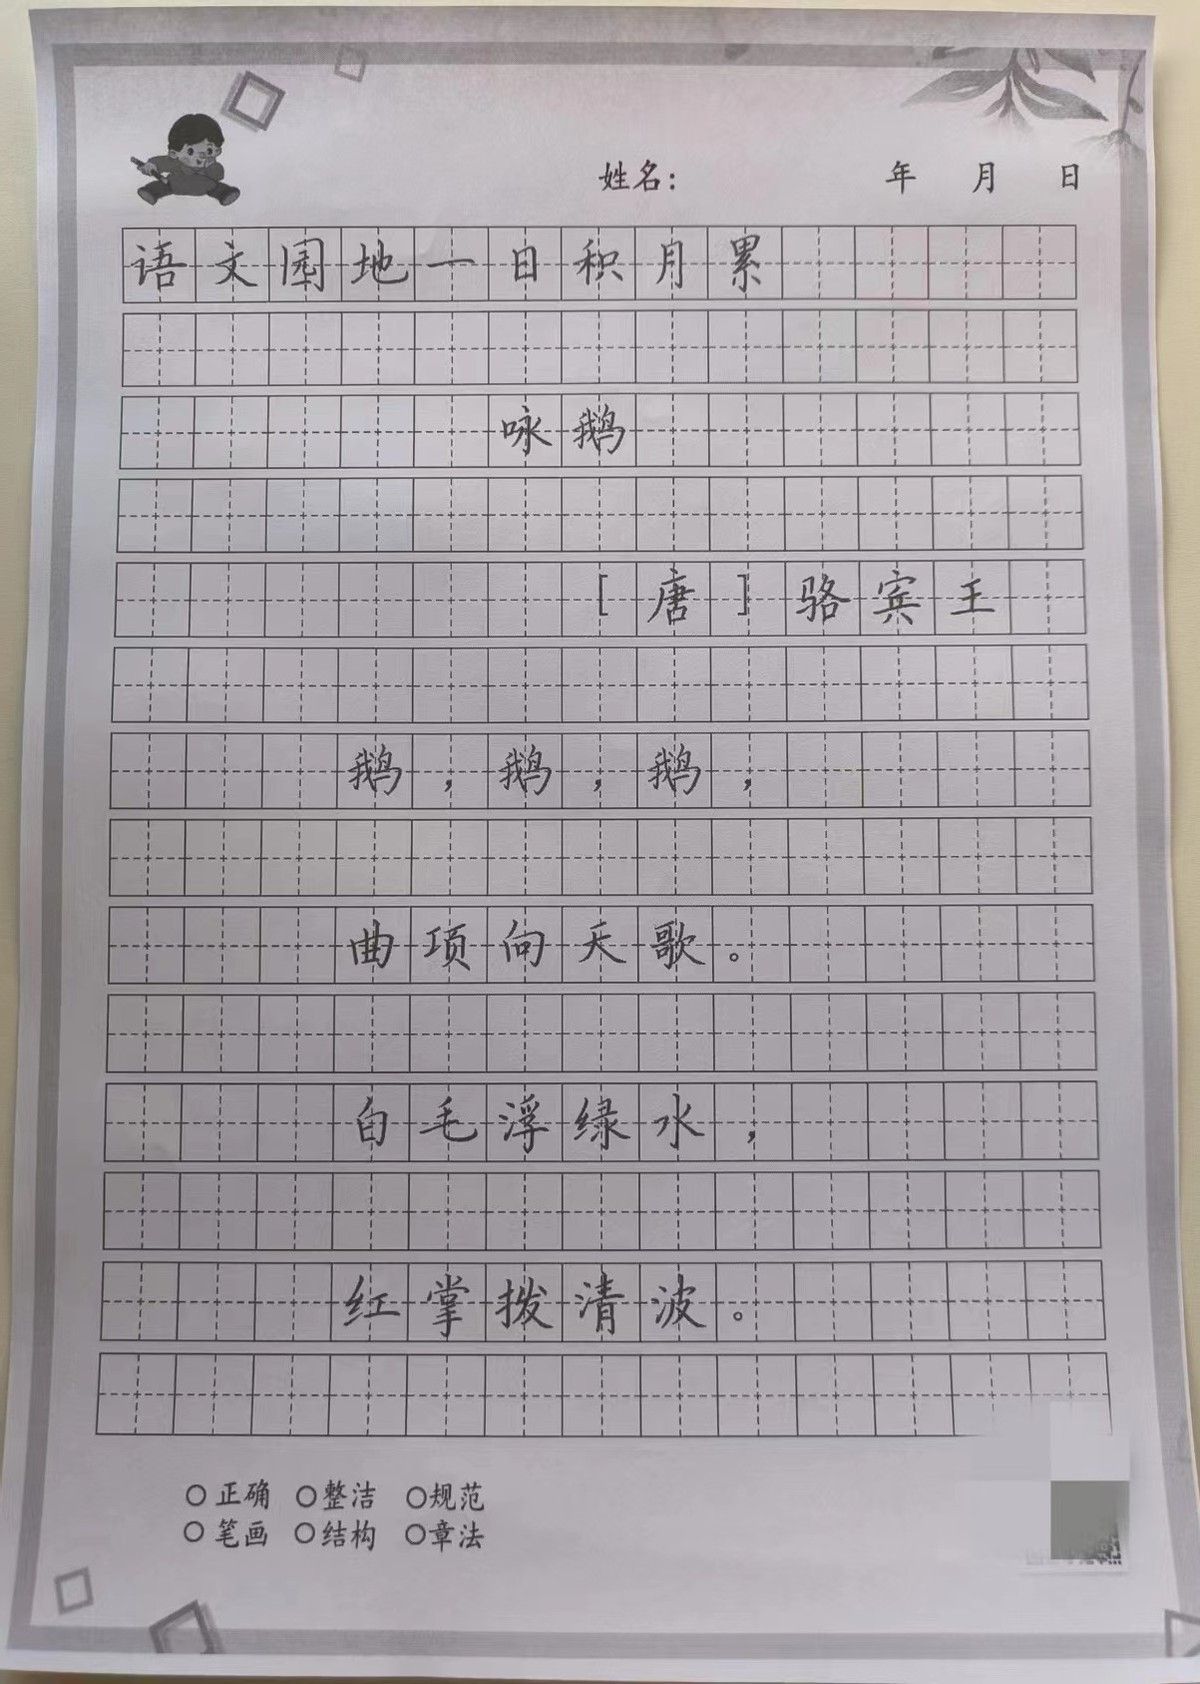 姓名： 年 月 日
语文园地一日积月累
咏鹅
[唐]骆宾王
鹅，鹅，鹅，
曲项向天歌。
白毛浮绿水，
红掌拨清波。
○正确 ○整洁 ○规范
○笔画 ○结构 ○章法